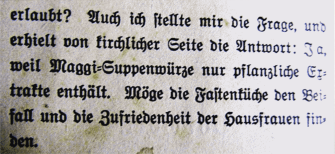 erlaubt? Auch ich stellte mir die Frage, und
erhielt von kirchlicher Seite die Antwort: Ja,
weil Maggi-Suppenwürze nur pflanzliche Ex-
trakte enthält. Möge die Fastenküche den Bei-
fall und die Zufriedenheit der Hausfrauen fin-
den.